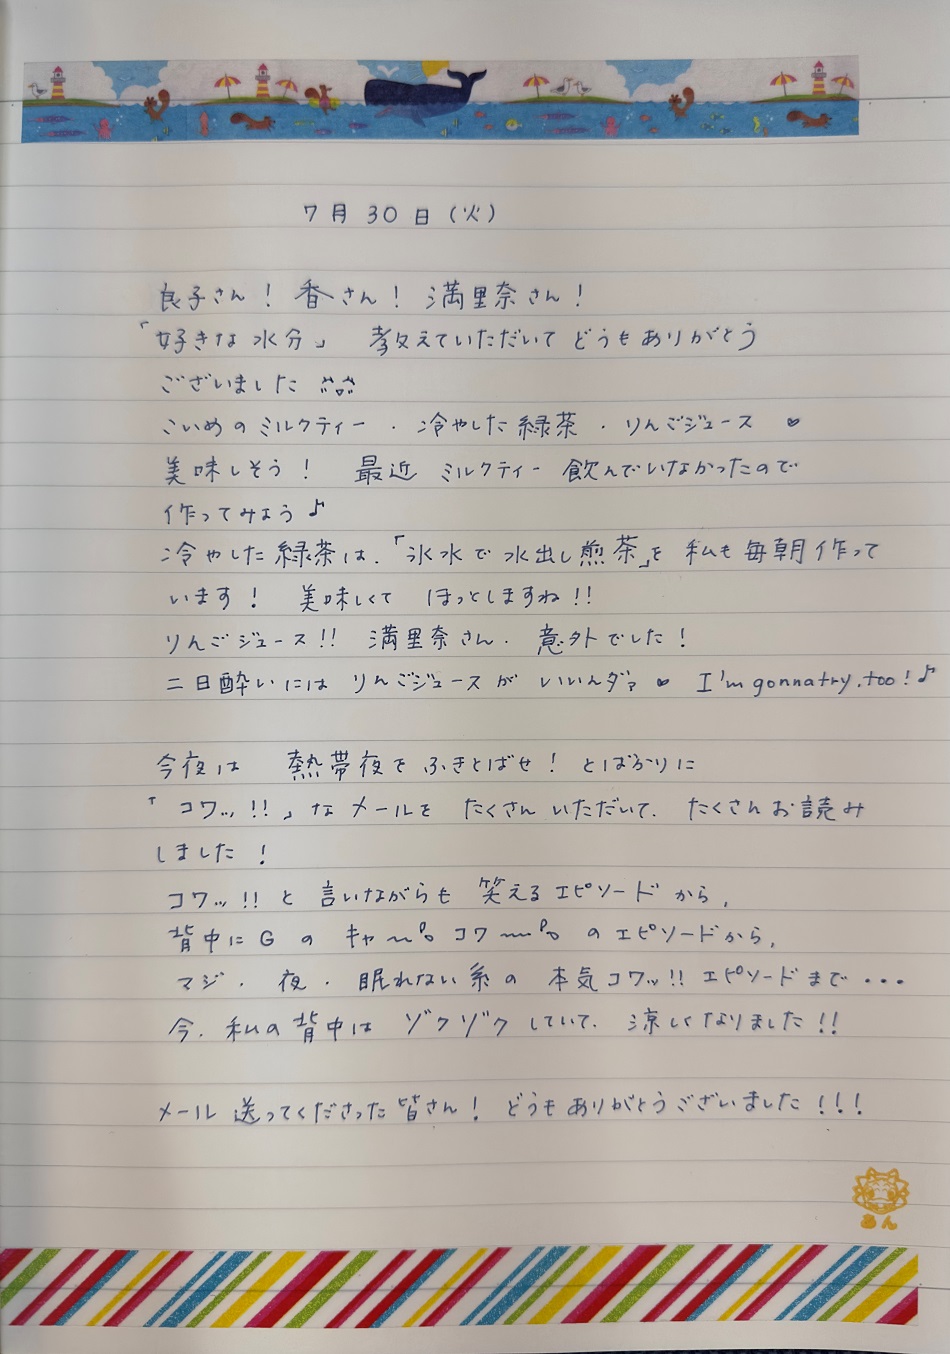 7月30日(火)
良子さん! 香さん! 満里奈さん!
「好きな水分」 教えていただいて どうもありがとう
ございました
こいめのミルクティー・冷やした緑茶・りんごジュース ♥
美味しそう! 最近 ミルクティー 飲んでいなかったので
作ってみよう♪
冷やした緑茶は、「氷水で水出し煎茶」を 私も毎朝作って
います! 美味しくて ほっとしますね!!
りんごジュース!! 満里奈さん、意外でした!
二日酔いには りんごジュースが いいんダァ ♥ I'm gonna try, too!♪
今夜は 熱帯夜をふきとばせ! とばかりに
「コワッ!!」な メールを たくさん いただいて、たくさんお読み
しました!
コワッ!! と 言いながらも 笑えるエピソードから、
背中に G の キャ〜〜。コワ〜〜。のエピソードから、
マジ、夜、眠れない系の 本気コワッ!! エピソードまで・・・
今、私の背中は ゾクゾク していて、涼しくなりました!!
メール 送ってくださった皆さん! どうもありがとうございました!!!
あん